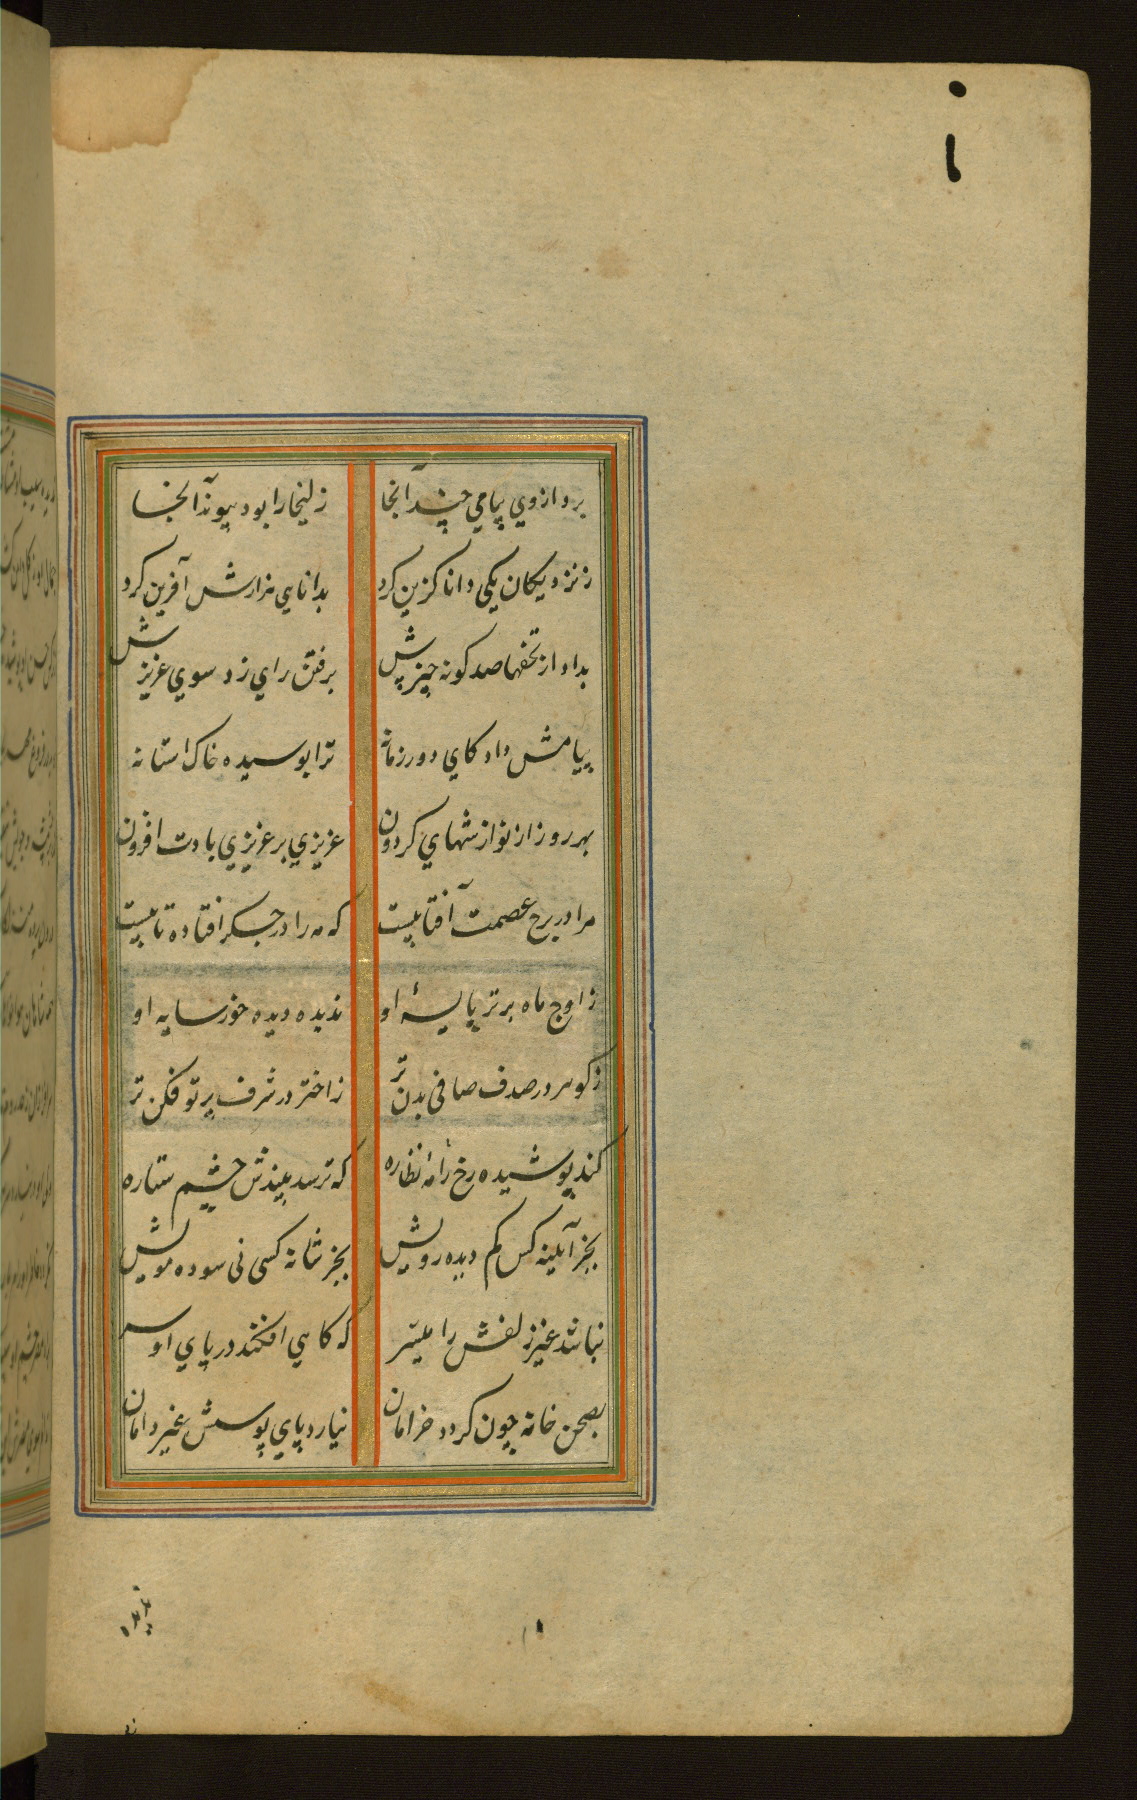 برد از وي پيامي چند آنجا زليخا را بود پيوند آنجا
ز نزديكان يكي دانا كزين كرد بدانايي هزارش آفرين كرد
بداد از تحفها صد كونه چيزش برفتن راي زد سوي عزيزش
پيامش داد كاي دور زمانه ترا بوسيده خاك استانه
بهر روز از نوازشهاي كردون عزيزي بر عزيزي بادت افزون
مرا در برج عصمت آفتابيست كه مه را در جكر افتاده تابيست
ز اوج ماه برتر پايۀ او نديده ديده خور سايه او
ز كوهر در صدف صافي بدن تر ز اختر در شرف پرتو فكن تر
كند پوشيده رخ مه را نظاره كه ترسد بيندش چشم ستاره
بجز آيينه كس كم ديده رويش بجز شانه كسي ني سوده مويش
نباشد غير زلفش را ميسر كه كاهي افكند در پاي او سر
بصحن خانه چون كردد خرامان نيارد پاي بوسش غير دامان